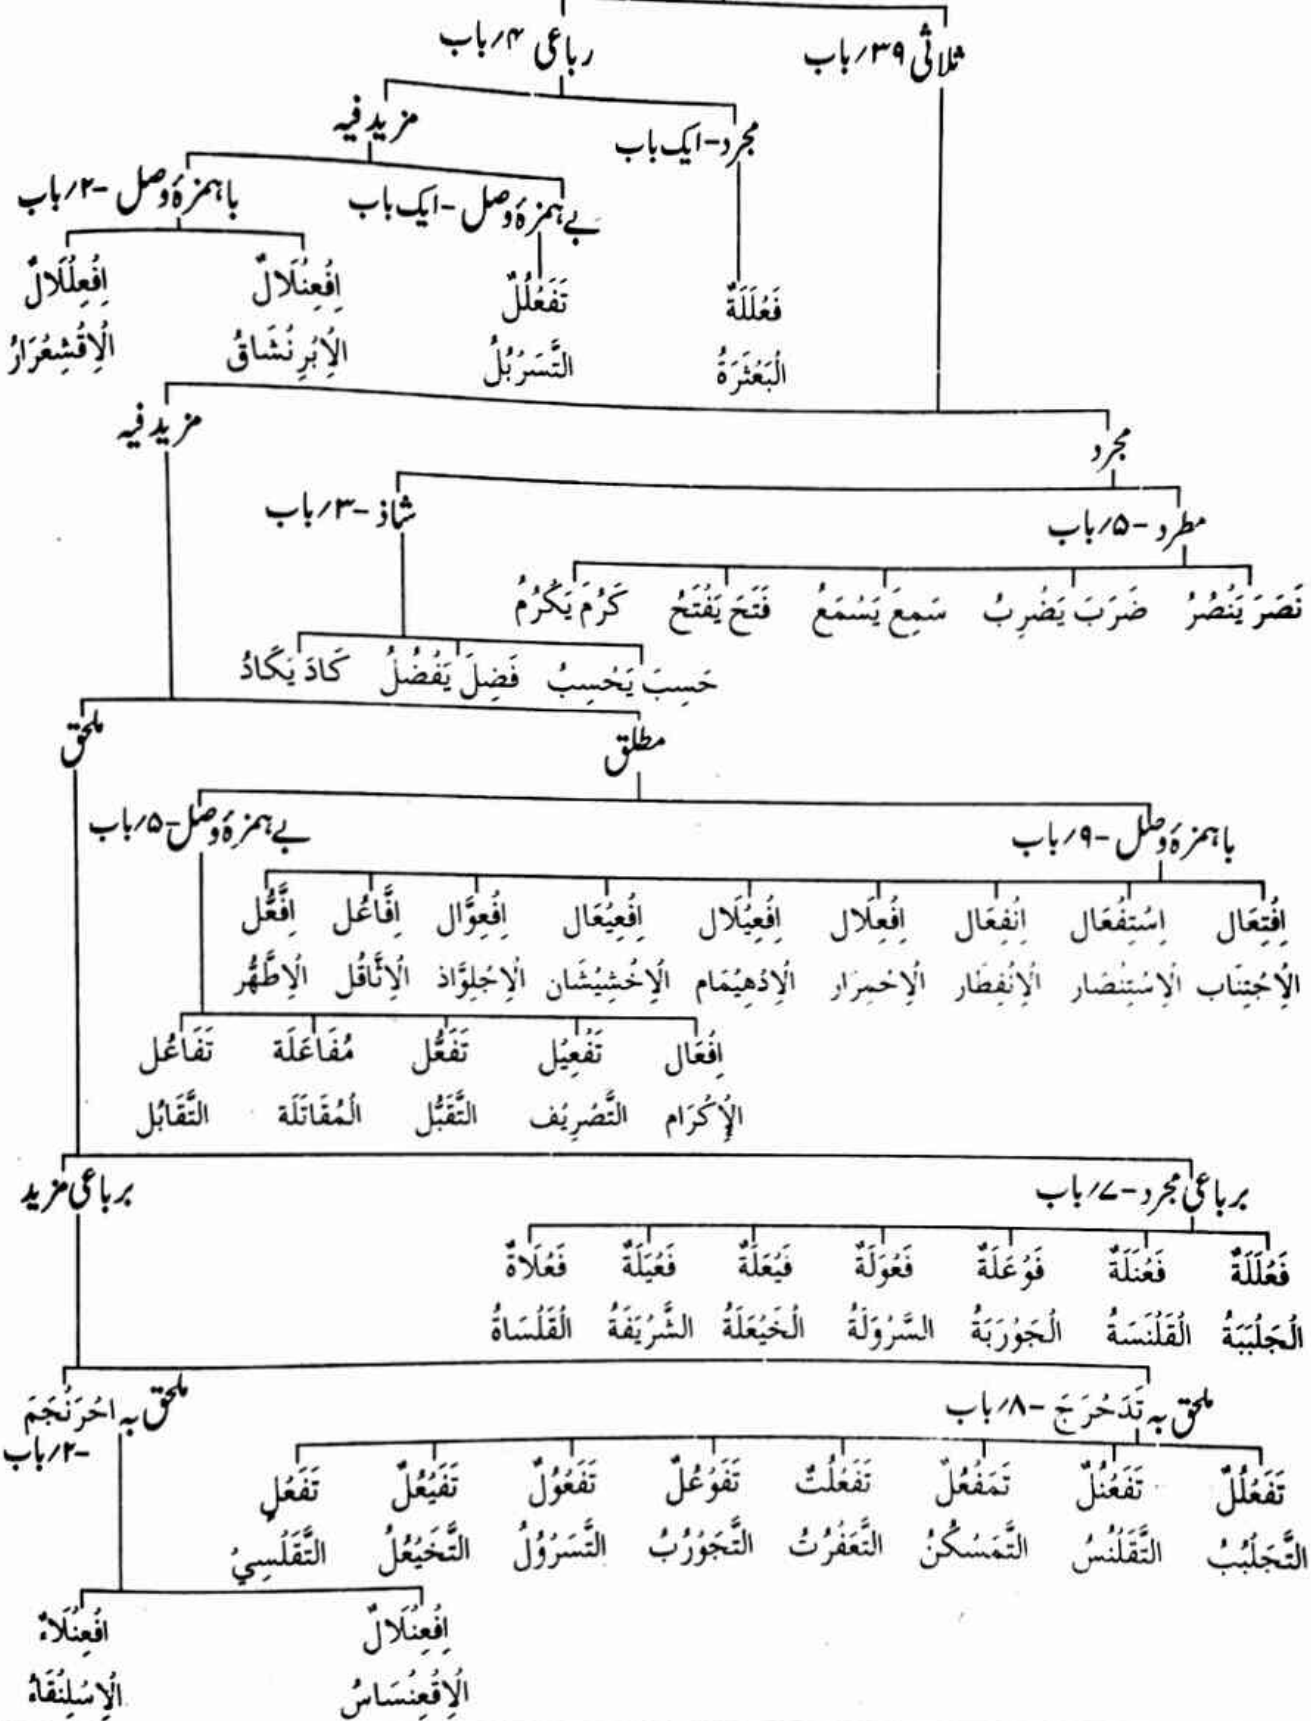 ثلاثی ۳۹/باب
رباعی ۴/باب
مجرد-ایک باب
مزید فیہ
بے ہمزۂ وصل-ایک باب
باہمزۂ وصل-۲/باب
فَعْلَلَةٌ
تَفَعْلُلٌ
اِفْعِنْلَالٌ
اِفْعِلْلَالٌ
الْبَعْثَرَةُ
التَّسَرْبُلُ
الْاِبْرِنْشَاقُ
الْاِقْشِعْرَارُ
مجرد
مزید فیہ
مطرد-۵/باب
شاذ-۳/باب
نَصَرَ يَنْصُرُ
ضَرَبَ يَضْرِبُ
سَمِعَ يَسْمَعُ
فَتَحَ يَفْتَحُ
كَرُمَ يَكْرُمُ
حَسِبَ يَحْسِبُ
فَضِلَ يَفْضُلُ
كَادَ يَكَادُ
مطلق
ملحق
باہمزۂ وصل-۹/باب
بے ہمزۂ وصل-۵/باب
اِفْتِعَال
اِسْتِفْعَال
اِنْفِعَال
اِفْعِلَال
اِفْعِيْلَال
اِفْعِيْعَال
اِفْعِوَّال
اِفَّاعُل
اِفَّعُّل
الْاِجْتِنَاب
الْاِسْتِنْصَار
الْاِنْفِطَار
الْاِحْمِرَار
الْاِدْهِيْمَام
الْاِخْشِيْشَان
الْاِجْلِوَّاذ
الْاِثَّاقُل
الْاِطَّهُّر
اِفْعَال
تَفْعِيْل
تَفَعُّل
مُفَاعَلَة
تَفَاعُل
الْاِكْرَام
التَّصْرِيْف
التَّقَبُّل
الْمُقَاتَلَة
التَّقَابُل
برباعی مجرد-۷/باب
برباعی مزید
فَعْلَلَةٌ
فَعْنَلَةٌ
فَوْعَلَةٌ
فَعْوَلَةٌ
فَيْعَلَةٌ
فَعْيَلَةٌ
فَعْلَاةٌ
الْجَلْبَبَةُ
الْقَلْنَسَةُ
الْجَوْرَبَةُ
السَّرْوَلَةُ
الْخَيْعَلَةُ
الشَّرْيَفَةُ
الْقَلْسَاةُ
ملحق بہ تَدَحْرَجَ-۸/باب
ملحق بہ احْرَنْجَمَ
-۲/باب
تَفَعْلُلٌ
تَفَعْنُلٌ
تَمَفْعُلٌ
تَفَعْلُتٌ
تَفَوْعُلٌ
تَفَعْوُلٌ
تَفَيْعُلٌ
تَفَعْلٍ
التَّجَلْبُبُ
التَّقَلْنُسُ
التَّمَسْكُنُ
التَّعَفْرُتُ
التَّجَوْرُبُ
التَّسَرْوُلُ
التَّخَيْعُلُ
التَّقَلْسِيْ
اِفْعِنْلَالٌ
افْعِنْلَاءٌ
الْاِقْعِنْسَاسُ
الْاِسْلِنْقَاءُ